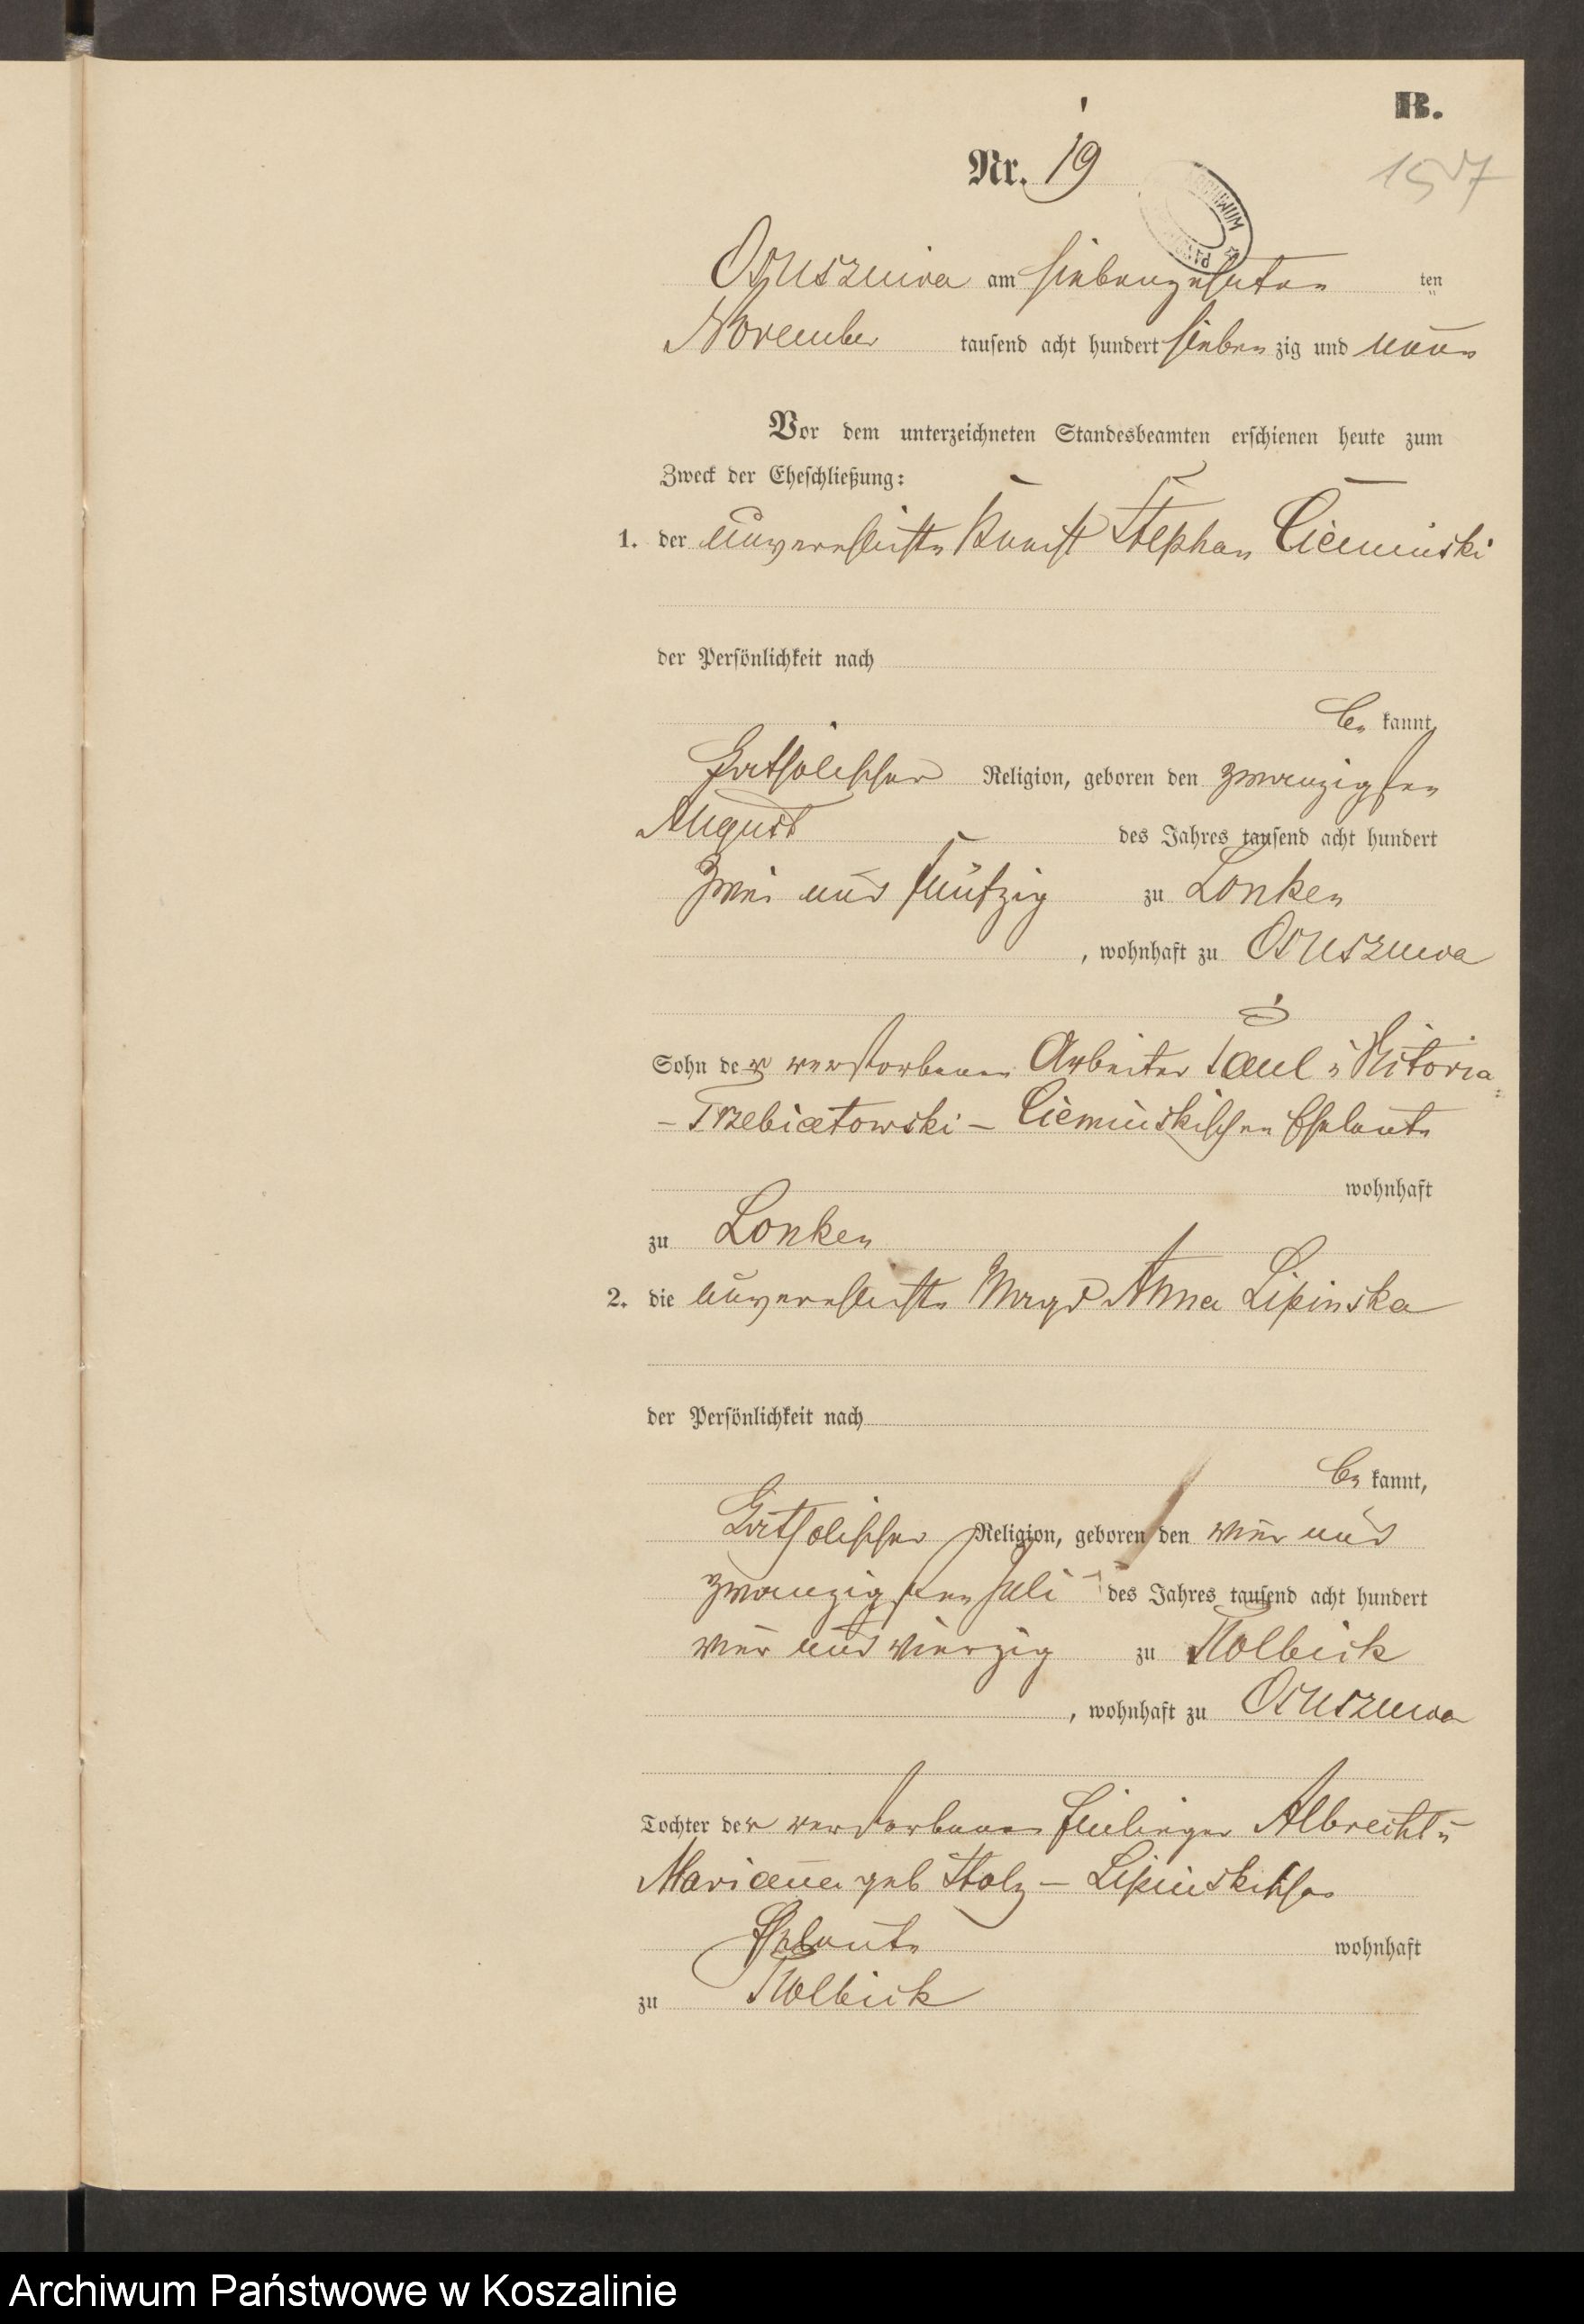 B.
Nr. 19
157
ARCHIWUM
Osuszniva am siebenzehnten ten
November tausend acht hundert sieben zig und neun
Vor dem unterzeichneten Standesbeamten erschienen heute zum
Zweck der Eheschließung:
1. der unverehlichte Knecht Stephan Cieminski
der Persönlichkeit nach
be kannt,
katholischer Religion, geboren den zwanzigsten
August des Jahres tausend acht hundert
zwei und fünfzig zu Lonken
, wohnhaft zu Osuszniva
Sohn der verstorbenen Arbeiter Paul u Viktoria
- Trzebiatowski - Cieminskischen Eheleute
wohnhaft
zu Lonken
2. die unverehlichte Magd Anna Lipinska
der Persönlichkeit nach
be kannt,
katholischer Religion, geboren den vier und
zwanzigsten Juli des Jahres tausend acht hundert
vier und vierzig zu Stolbick
, wohnhaft zu Osuszniva
Tochter der verstorbenen Albrecht u
Marianna geb Stolz - Lipinskischen
Eheleute wohnhaft
zu
Archiwum Państwowe w Koszalinie